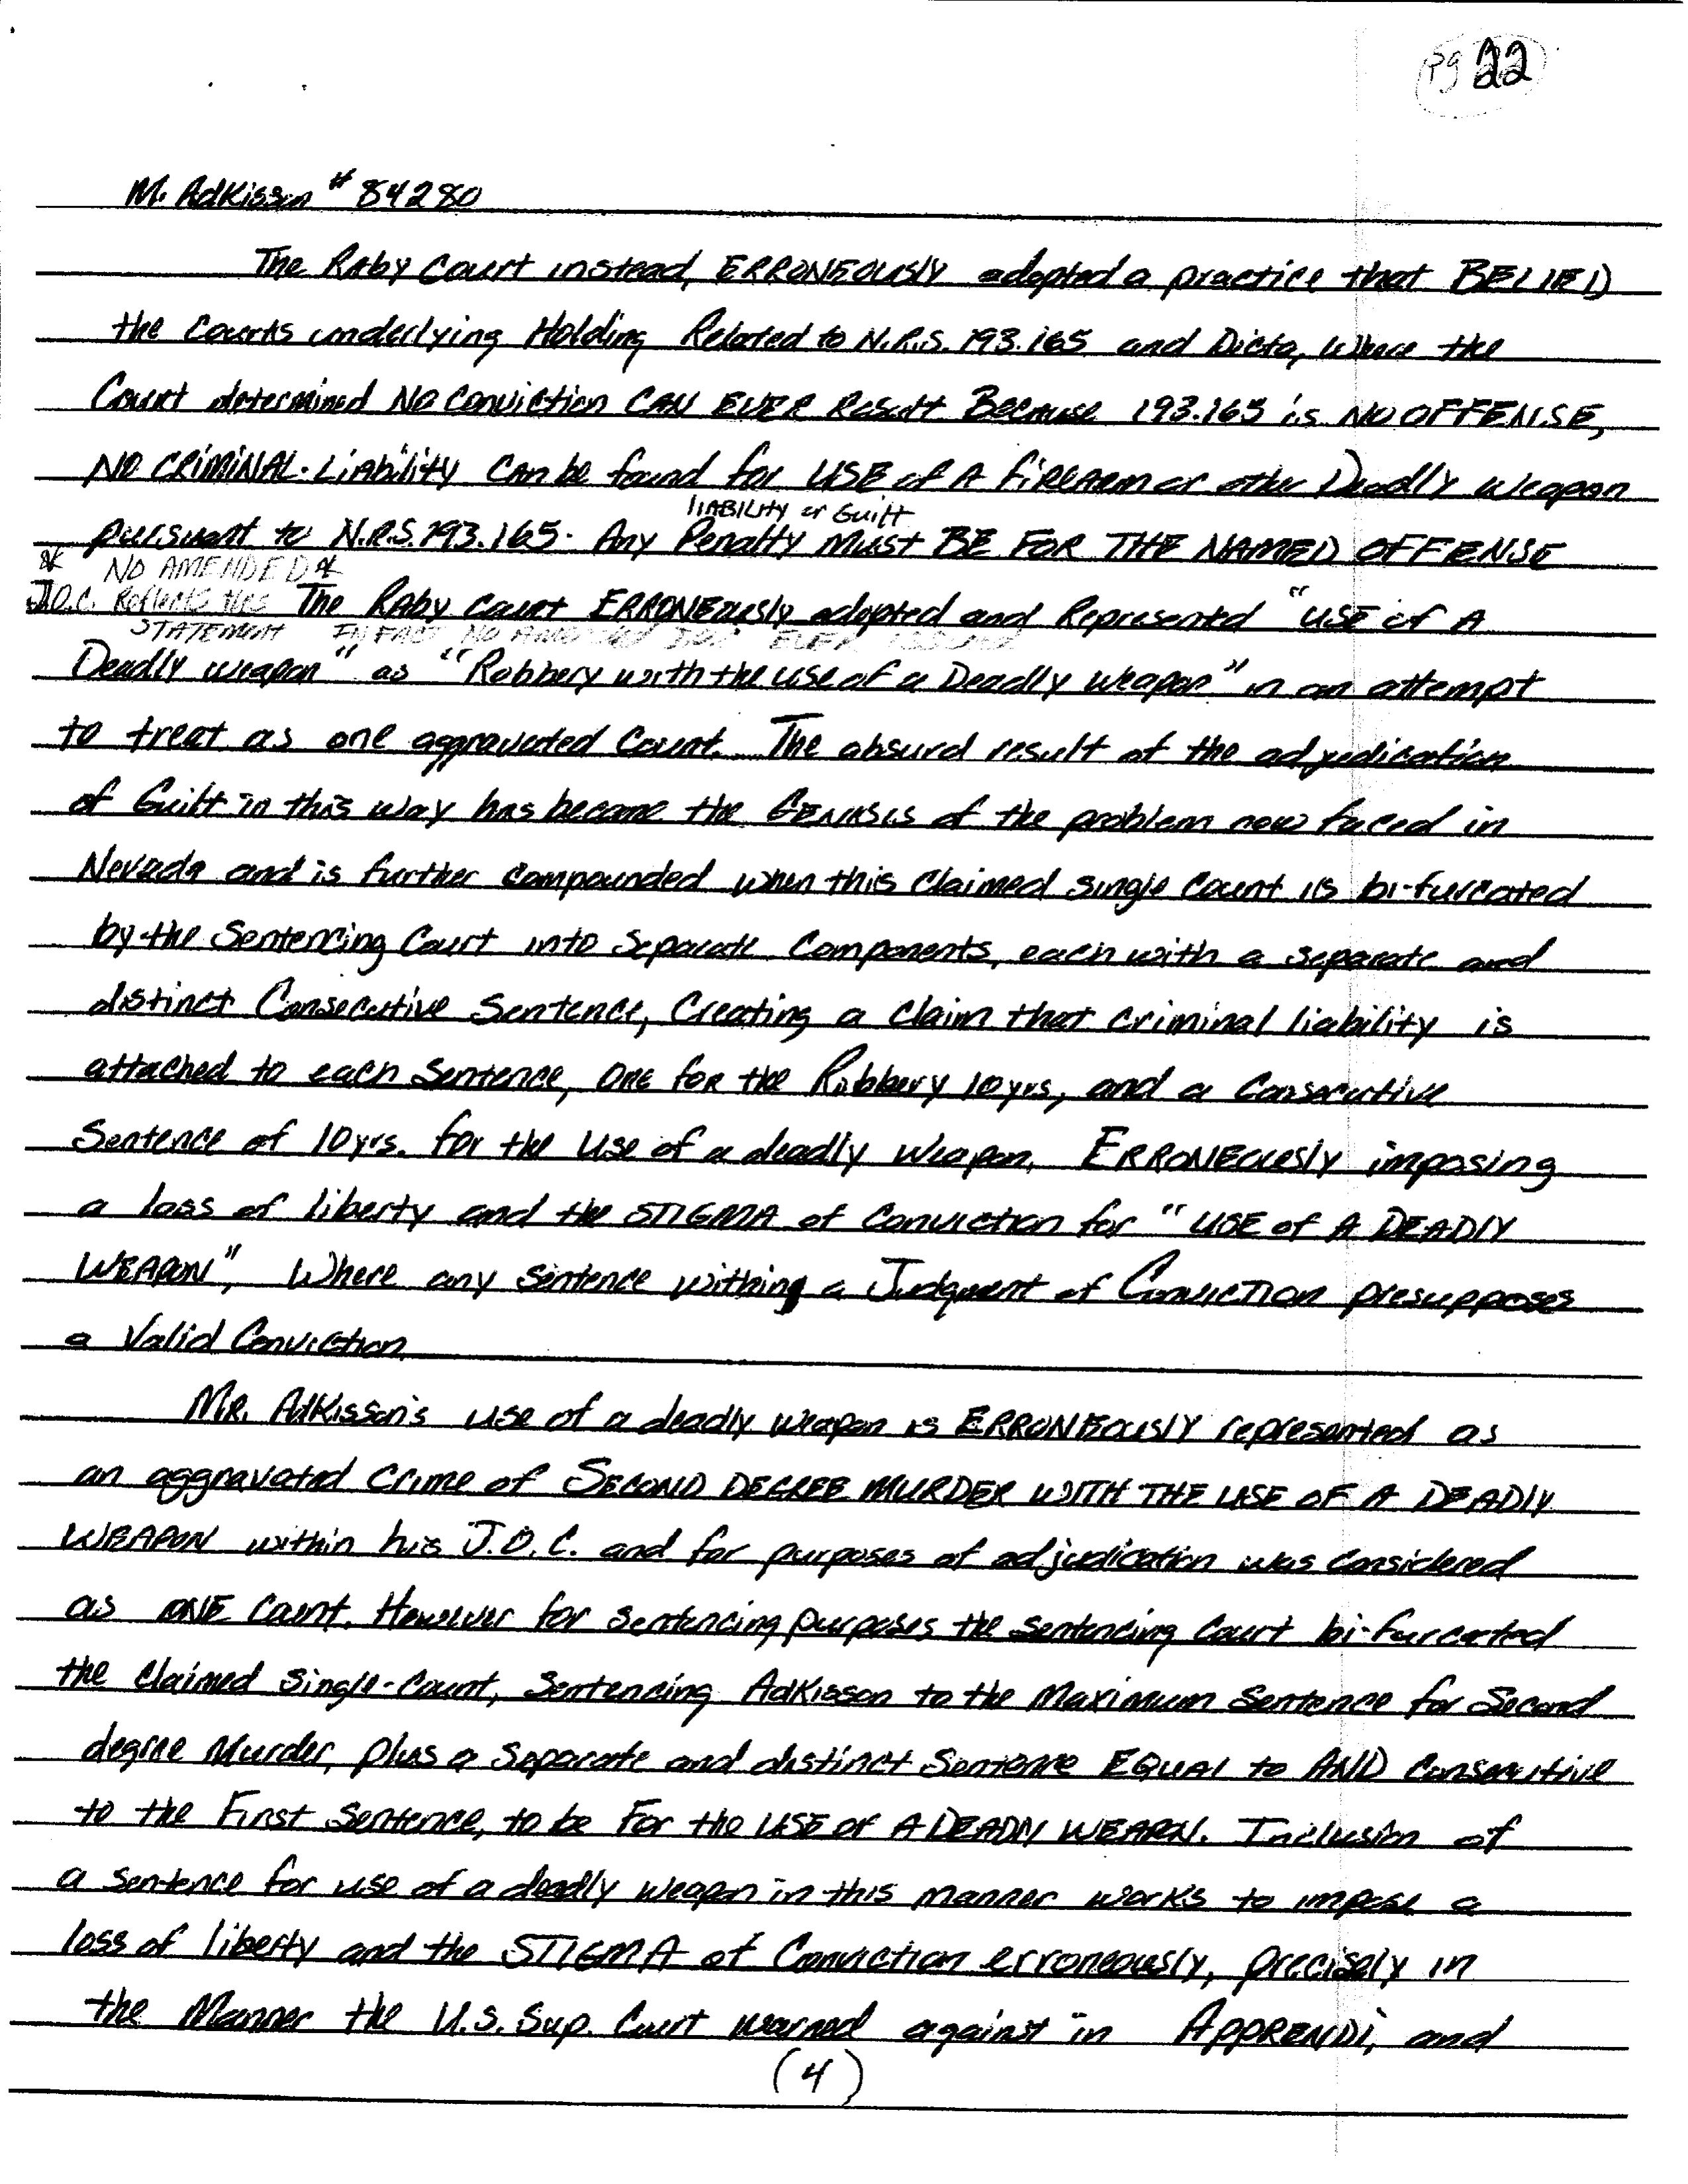 Pg 22
M. Adkisson # 84280
The Raby Court instead, ERRONEOUSLY adopted a practice that BELIED
the Courts underlying Holding Related to N.R.S. 193.165 and Dicta, Where the
Court determined NO Conviction CAN EVER Result Because 193.165 is NO OFFENSE,
NO CRIMINAL-LiAbility CAn be found for USE of A FiREARM or other Deadly Weapon
liABILITY or Guilt
pursuant to N.R.S. 193.165. Any Penalty Must BE FOR THE NAMED OFFENSE
* NO AMENDED *
J.O.C. Reflects this The Raby Court ERRONEously adopted and Represented "USE of A
STATEMENT IN FACT NO AMENDED JOC EVER ISSUED
Deadly weapon" as "Robbery with the use of a Deadly Weapon" in an attempt
to treat as one aggravated Count. The absurd result of the adjudication
of Guilt in this way has become the GENISIS of the problem now faced in
Nevada and is further compounded when this Claimed single Count is bi-furcated
by the Sentencing Court into Separate Components, each with a separate and
distinct Consecutive Sentence, Creating a Claim that criminal liability is
attached to each Sentence, One for the Robbery 10yrs, and a Consecutive
Sentence of 10yrs. for the Use of a deadly Weapon, ERRONEOUSLY imposing
a loss of liberty and the STIGMA of Conviction for "USE of A DEADLY
WEAPON", Where any Sentence withing a Judgment of Conviction presupposes
a Valid Conviction.
MR. Adkisson's use of a deadly weapon is ERRONEOUSLY represented as
an aggravated Crime of SECOND DEGREE MURDER WITH THE USE OF A DEADLY
WEAPON within his J.O.C. and for purposes of adjudication was Considered
as ONE Count. However for sentencing purposes the Sentencing Court bi-furcated
the Claimed Single-Count, Sentencing Adkisson to the Maximum Sentence for Second
degree Murder, plus a Separate and distinct Sentence EQUAL to AND Consecutive
to the First Sentence, to be For the USE of A DEADLY WEAPON. Inclusion of
a sentence for use of a deadly weapon in this manner works to impose a
loss of liberty and the STIGMA of Conviction erroneously, precisely in
the Manner the U.S. Sup. Court warned against in APPRENDI, and
(4)